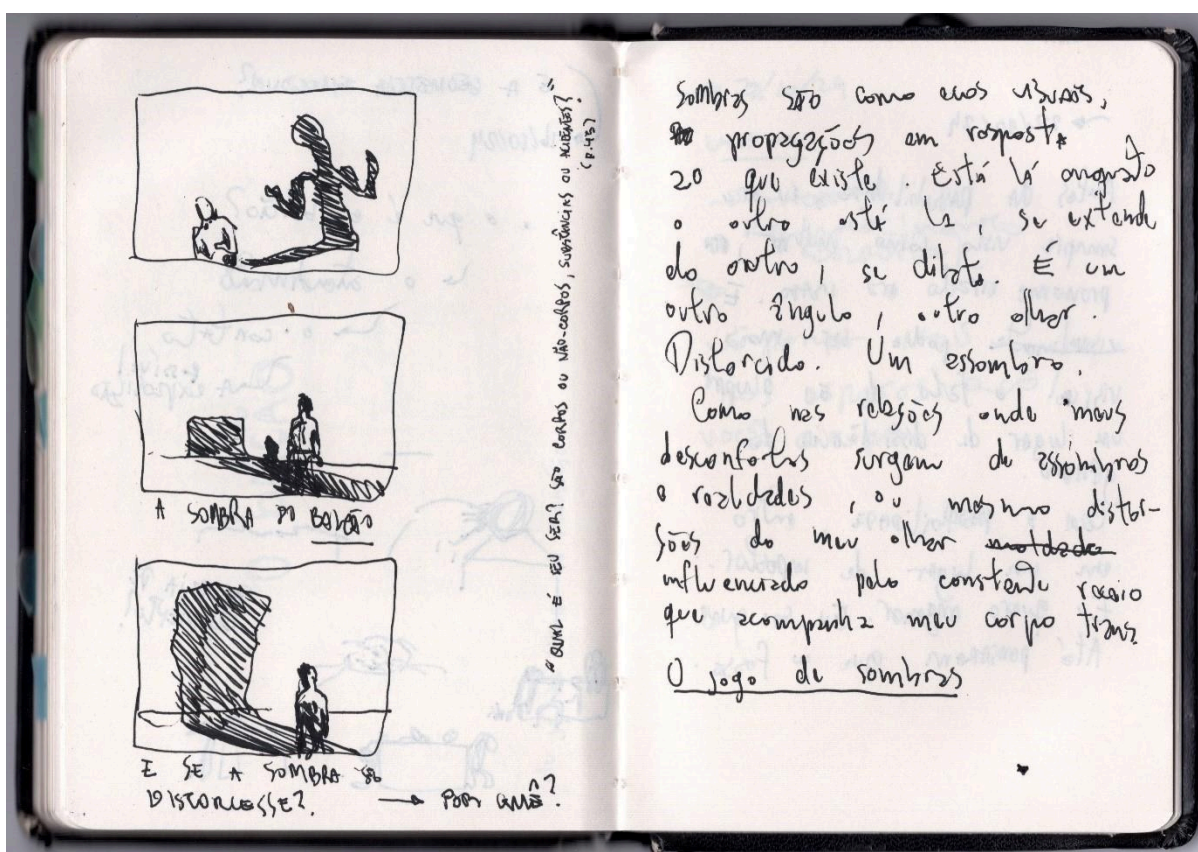 A SOMBRA DO BALCÃO
E SE A SOMBRA SE
DISTORCESSE? → POR QUÊ?
"QUAL É EU SER? SÃO CORPOS OU NÃO-CORPOS, SUBSTÂNCIAS OU ACIDENTES?"
Sombras são como ecos visuais,
propagações em resposta
ao que existe. Está lá enquanto
o outro está lá, se extende
do outro, se dilata. É um
outro ângulo, outro olhar.
Distorcido. Um assombro.
Como nas relações onde meus
desconfortos surgem de assombros
e realidades, ou mesmo distor-
ções do meu olhar moldado
influenciado pelo constante receio
que acompanha meu corpo trans.
O jogo de sombras